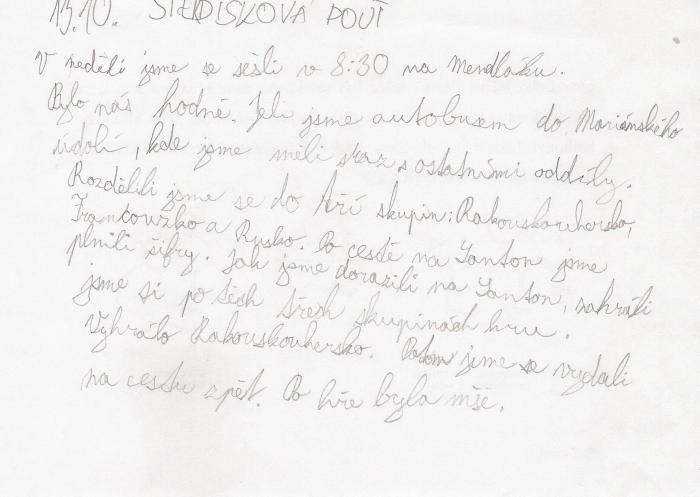 13.10. STŘEDISKOVÁ POUŤ
V neděli jsme se sešli v 8:30 na Mendláku.
Bylo nás hodně. Jeli jsme autobusem do Mariánského
údolí, kde jsme měli sraz s ostatními oddíly.
Rozdělili jsme se do tří skupin: Rakouskouhersko,
Francouzko a Rusko. Po cestě na Santon jsme
plnili šifry. Jak jsme dorazili na Santon, zahráli
jsme si po těch třech skupinách hru.
Vyhrálo Rakouskouhersko. Potom jsme se vydali
na cestu zpět. Po hře byla mše.